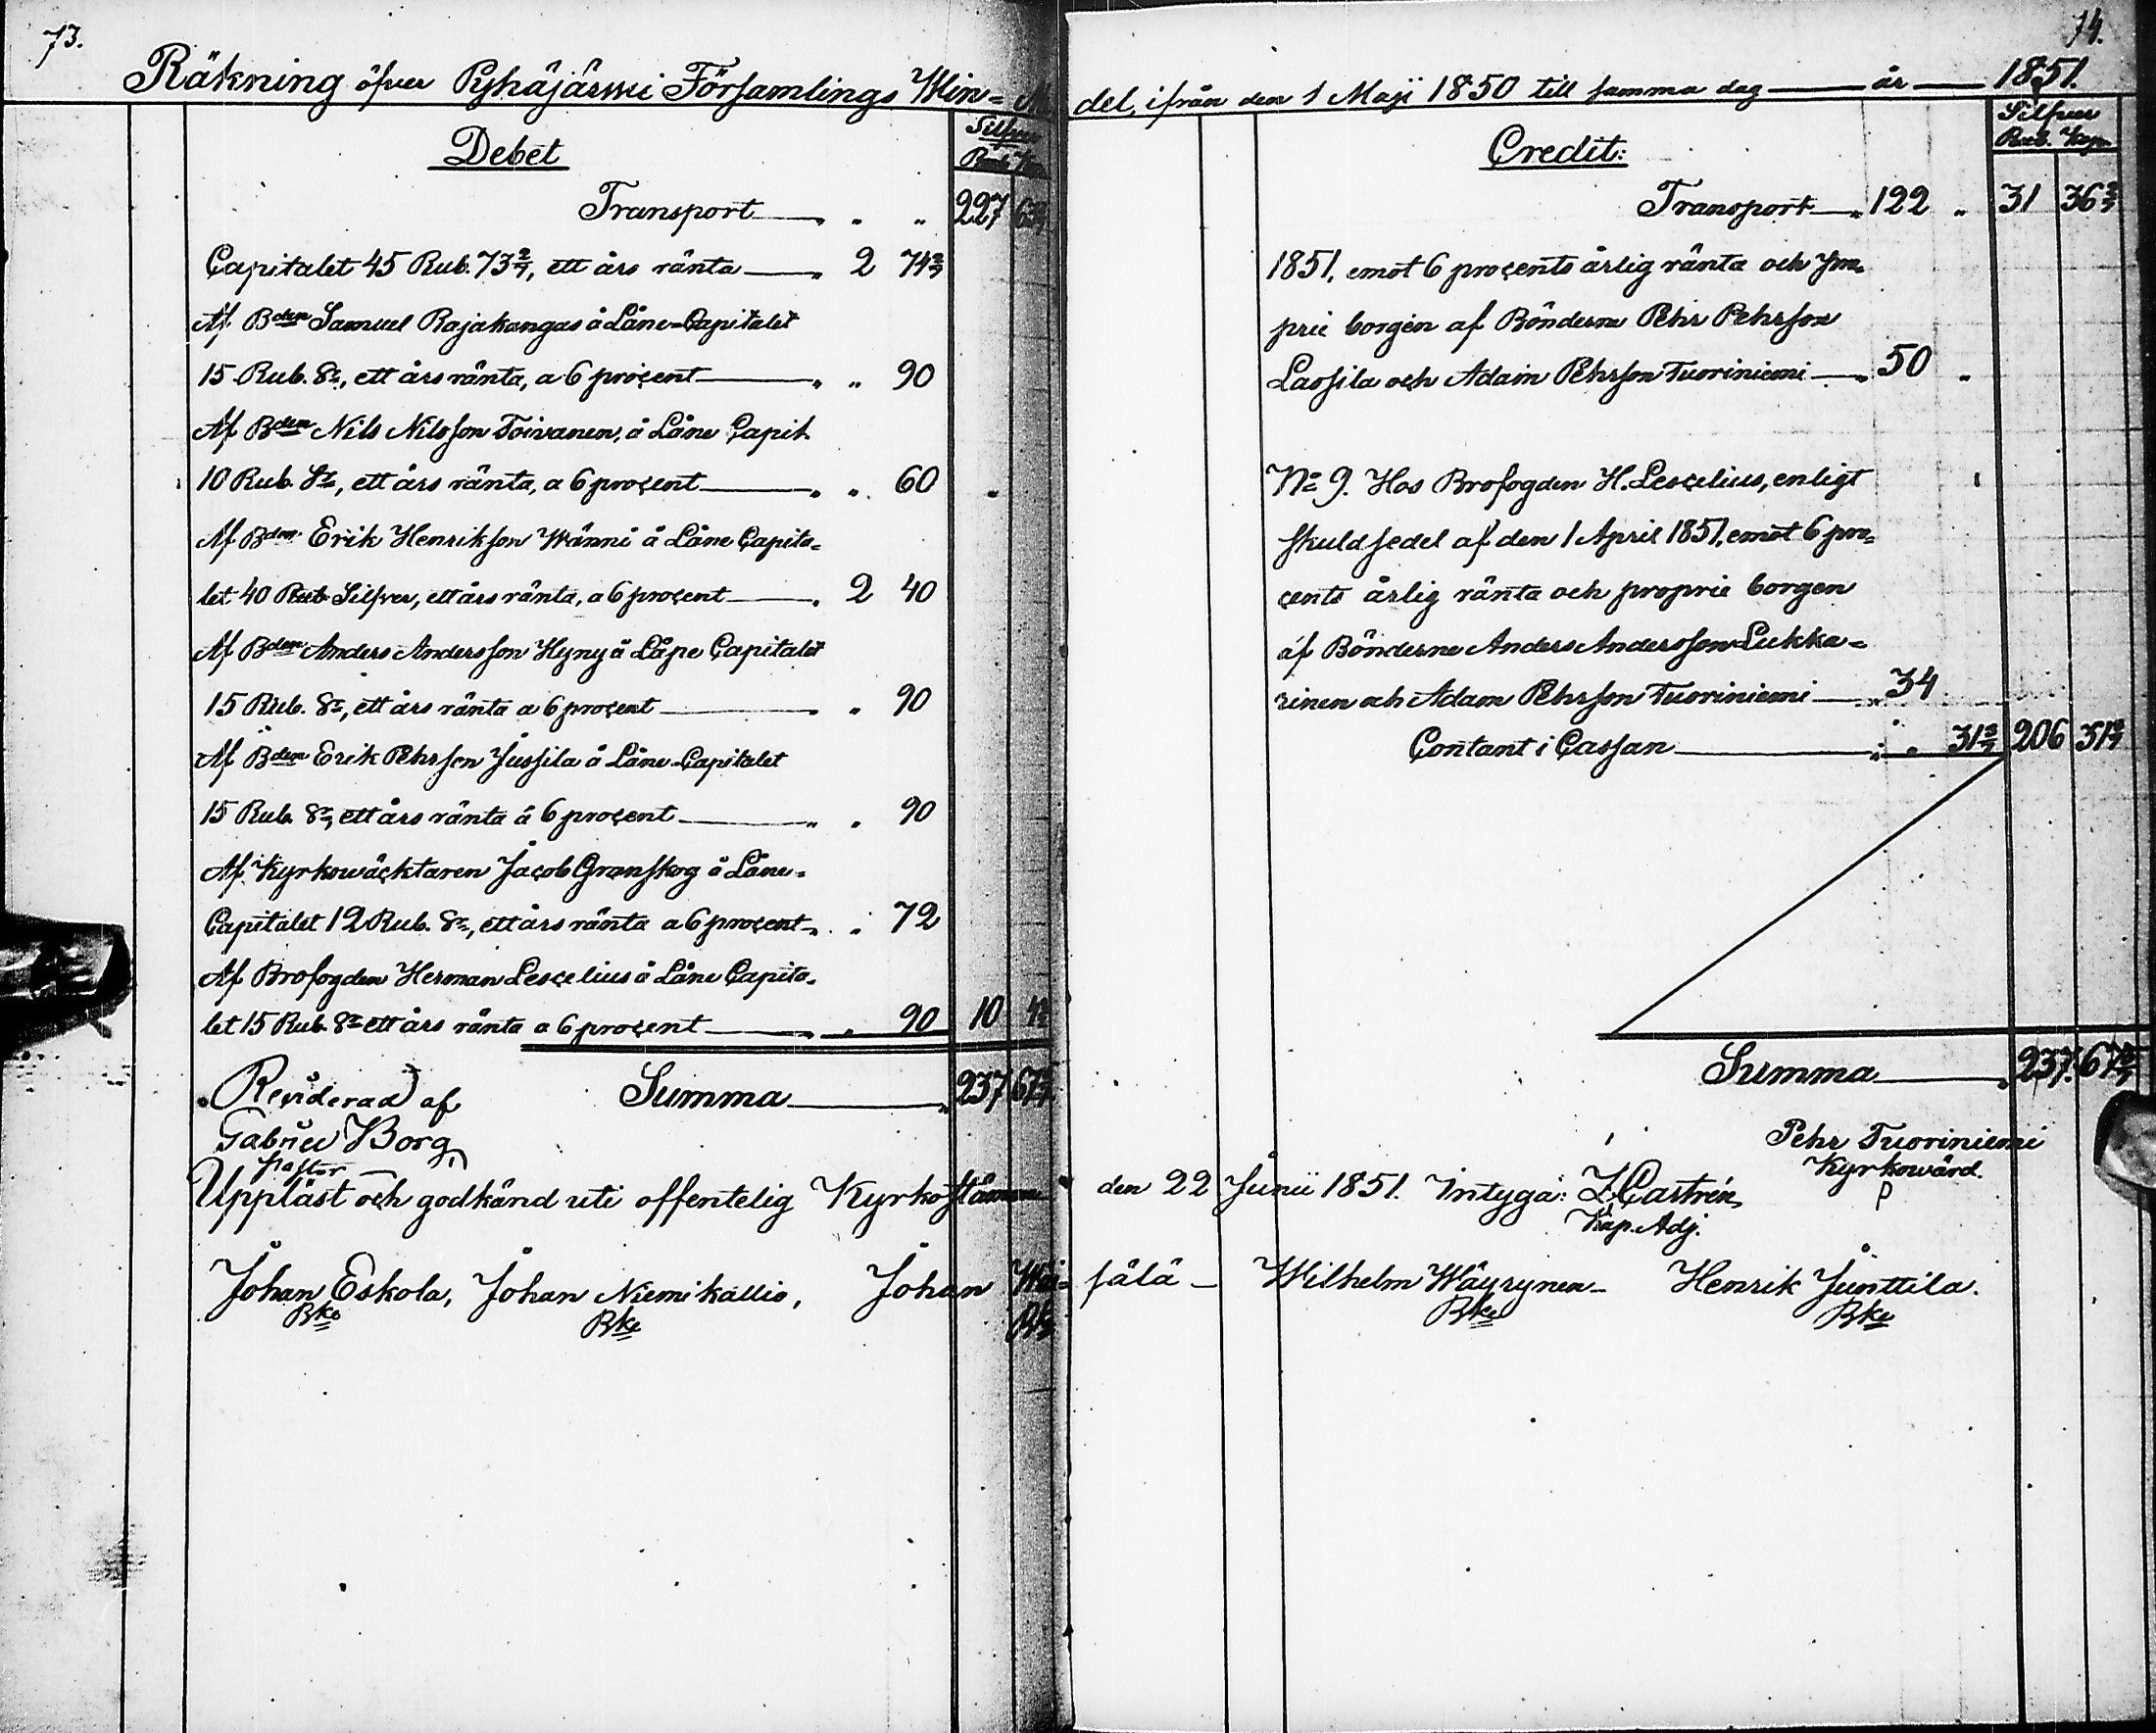 73.
Räkning öfver Pyhäjärwi Församlings Win=
Debet
Silfver
Rub. Kop.
Transport " " 227
Capitalet 45 Rub. 73 2/7, ett års ränta " 2 74 2/7
Af Bden Samuel Rajakangas å Låne-Capitalet
15 Rub. Sr, ett års ränta, a 6 procent " " 90
Af Bden Nils Nilsson Toivanen, å Låne Capit
10 Rub. Sr, ett års ränta, a 6 procent " " 60
Af Bden Erik Henrikson Wänni å Låne Capita=
let 40 Rub Silfver, ett års ränta, a 6 procent " 2 40
Af Bden Anders Andersson Hyny å Låne Capitalet
15 Rub. Sr, ett års ränta a 6 procent " " 90
Af Bden Erik Pehrsson Jussila å Låne-Capitalet
15 Rub. Sr, ett års ränta á 6 procent " " 90
Af Kyrkowäcktaren Jacob Granskog å Låne-
Capitalet 12 Rub. Sr, ett års ränta a 6 procent " " 72
Af Brofogden Herman Lescelius å Låne Capita-
let 15 Rub. Sr ett års ränta a 6 procent " " 90 10 4 2/7
Summa " 237 67 2/7
Renderad af
Gabriel Borg
pastor
Uppläst och godkänd uti offentelig Kyrkostämma
Johan Eskola, Johan Niemikallio, Johan Wai=
Bke Bke Bke
74.
del, ifrån den 1 Maji 1850 till samma dag år 1851.
Credit:
Silfver
Rub. Kop.
Transport " 122 " 31 36 2/7
1851, emot 6 procents årlig ränta och pro-
prie borgen af Bönderne Pehr Pehrsson
Lassila och Adam Pehrsson Tuoriniemi " 50 "
No 9. Hos Brofogden H. Lescelius, enligt
skuldsedel af den 1 April 1851, emot 6 pro=
cents årlig ränta och proprie borgen
af Bönderne Anders Andersson Lukka=
rinen och Adam Pehrsson Tuoriniemi " 34
Contant i Cassan " " 31 2/7 206 31 2/7
Summa " 237. 67 4/7
Pehr Tuoriniemi
Kyrkowärd.
den 22 Junii 1851. Intyga: Z. Castrén
Kap. Adj.
sälä - Wilhelm Wäyrynen - Henrik Junttila.
Bke Bke